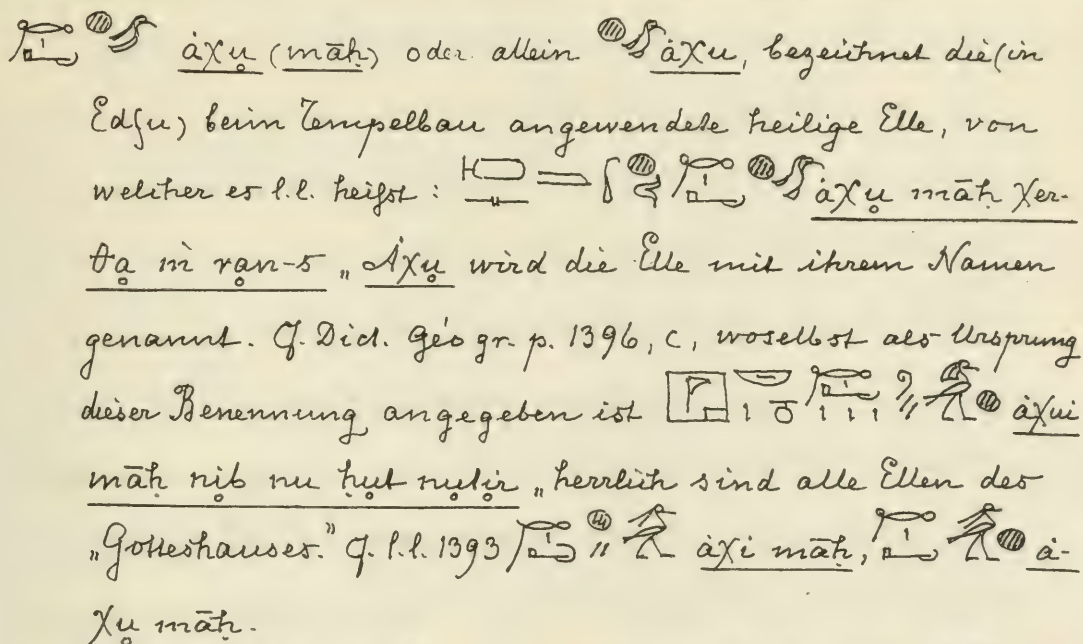 ȧχu̥ (māḥ) oder allein ȧχu, bezeichnet die (in
Edfu) beim Tempelbau angewendete heilige Elle, von
welcher es l.l. heifst: ȧχu̥ māḥ χer-
θḁ m̀ rḁn-s „Ȧχu̥ wird die Elle mit ihrem Namen
genannt. Cf. Dict. Géogr. p. 1396, c, woselbst als Ursprung
dieser Benennung angegeben ist ȧχui
māḥ ni̥b nu ḥu̥t nu̥ti̥r „herrlich sind alle Ellen des
„Gotteshauses.” Cf. l.l. 1393 ȧχi māḥ, ȧ-
χu̥ māḥ.